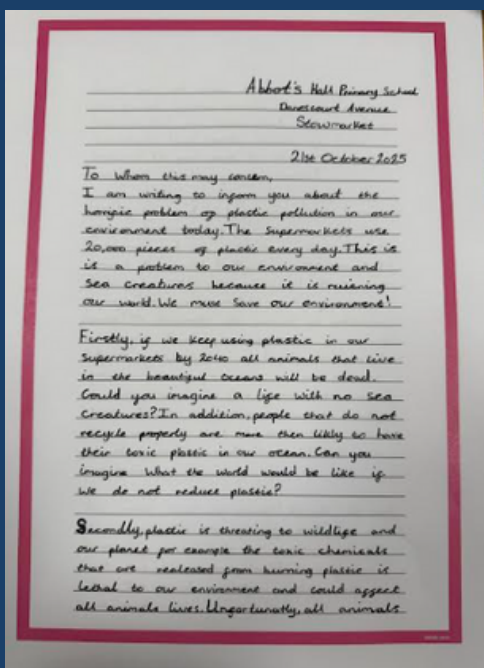 Abbot's Hall Primary School
Danescourt Avenue
Stowmarket
21st October 2025
To whom this may concern,
I am writing to inform you about the
horrific problem of plastic pollution in our
environment today. The supermarkets use
20,000 pieces of plastic every day. This is
is a problem to our environment and
sea creatures because it is ruiening
our world. We must save our environment!
Firstly, if we keep using plastic in our
supermarkets by 2040 all animals that live
in the beautiful oceans will be dead.
Could you imagine a life with no sea
creatures? In addition, people that do not
recycle properly are more then likely to have
their toxic plastic in our ocean. Can you
imagine what the world would be like if
we do not reduce plastic?
Secondly, plastic is threating to wildlife and
our planet for example the toxic chemicals
that are realeased from burning plastic is
lethal to our environment and could affect
all animals lives. Unfortunatly, all animals